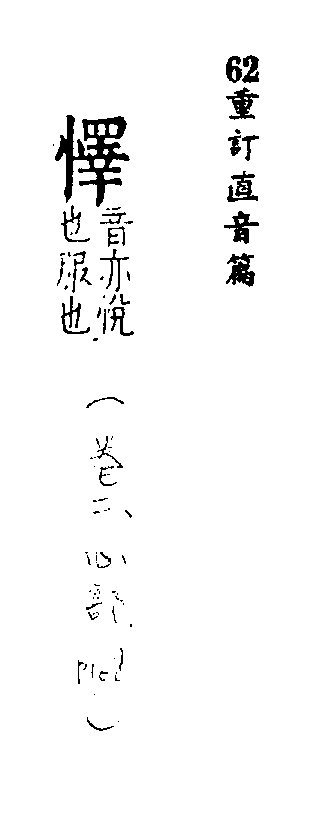 62重訂直音篇
懌音亦悅
也服也
(卷二、心部